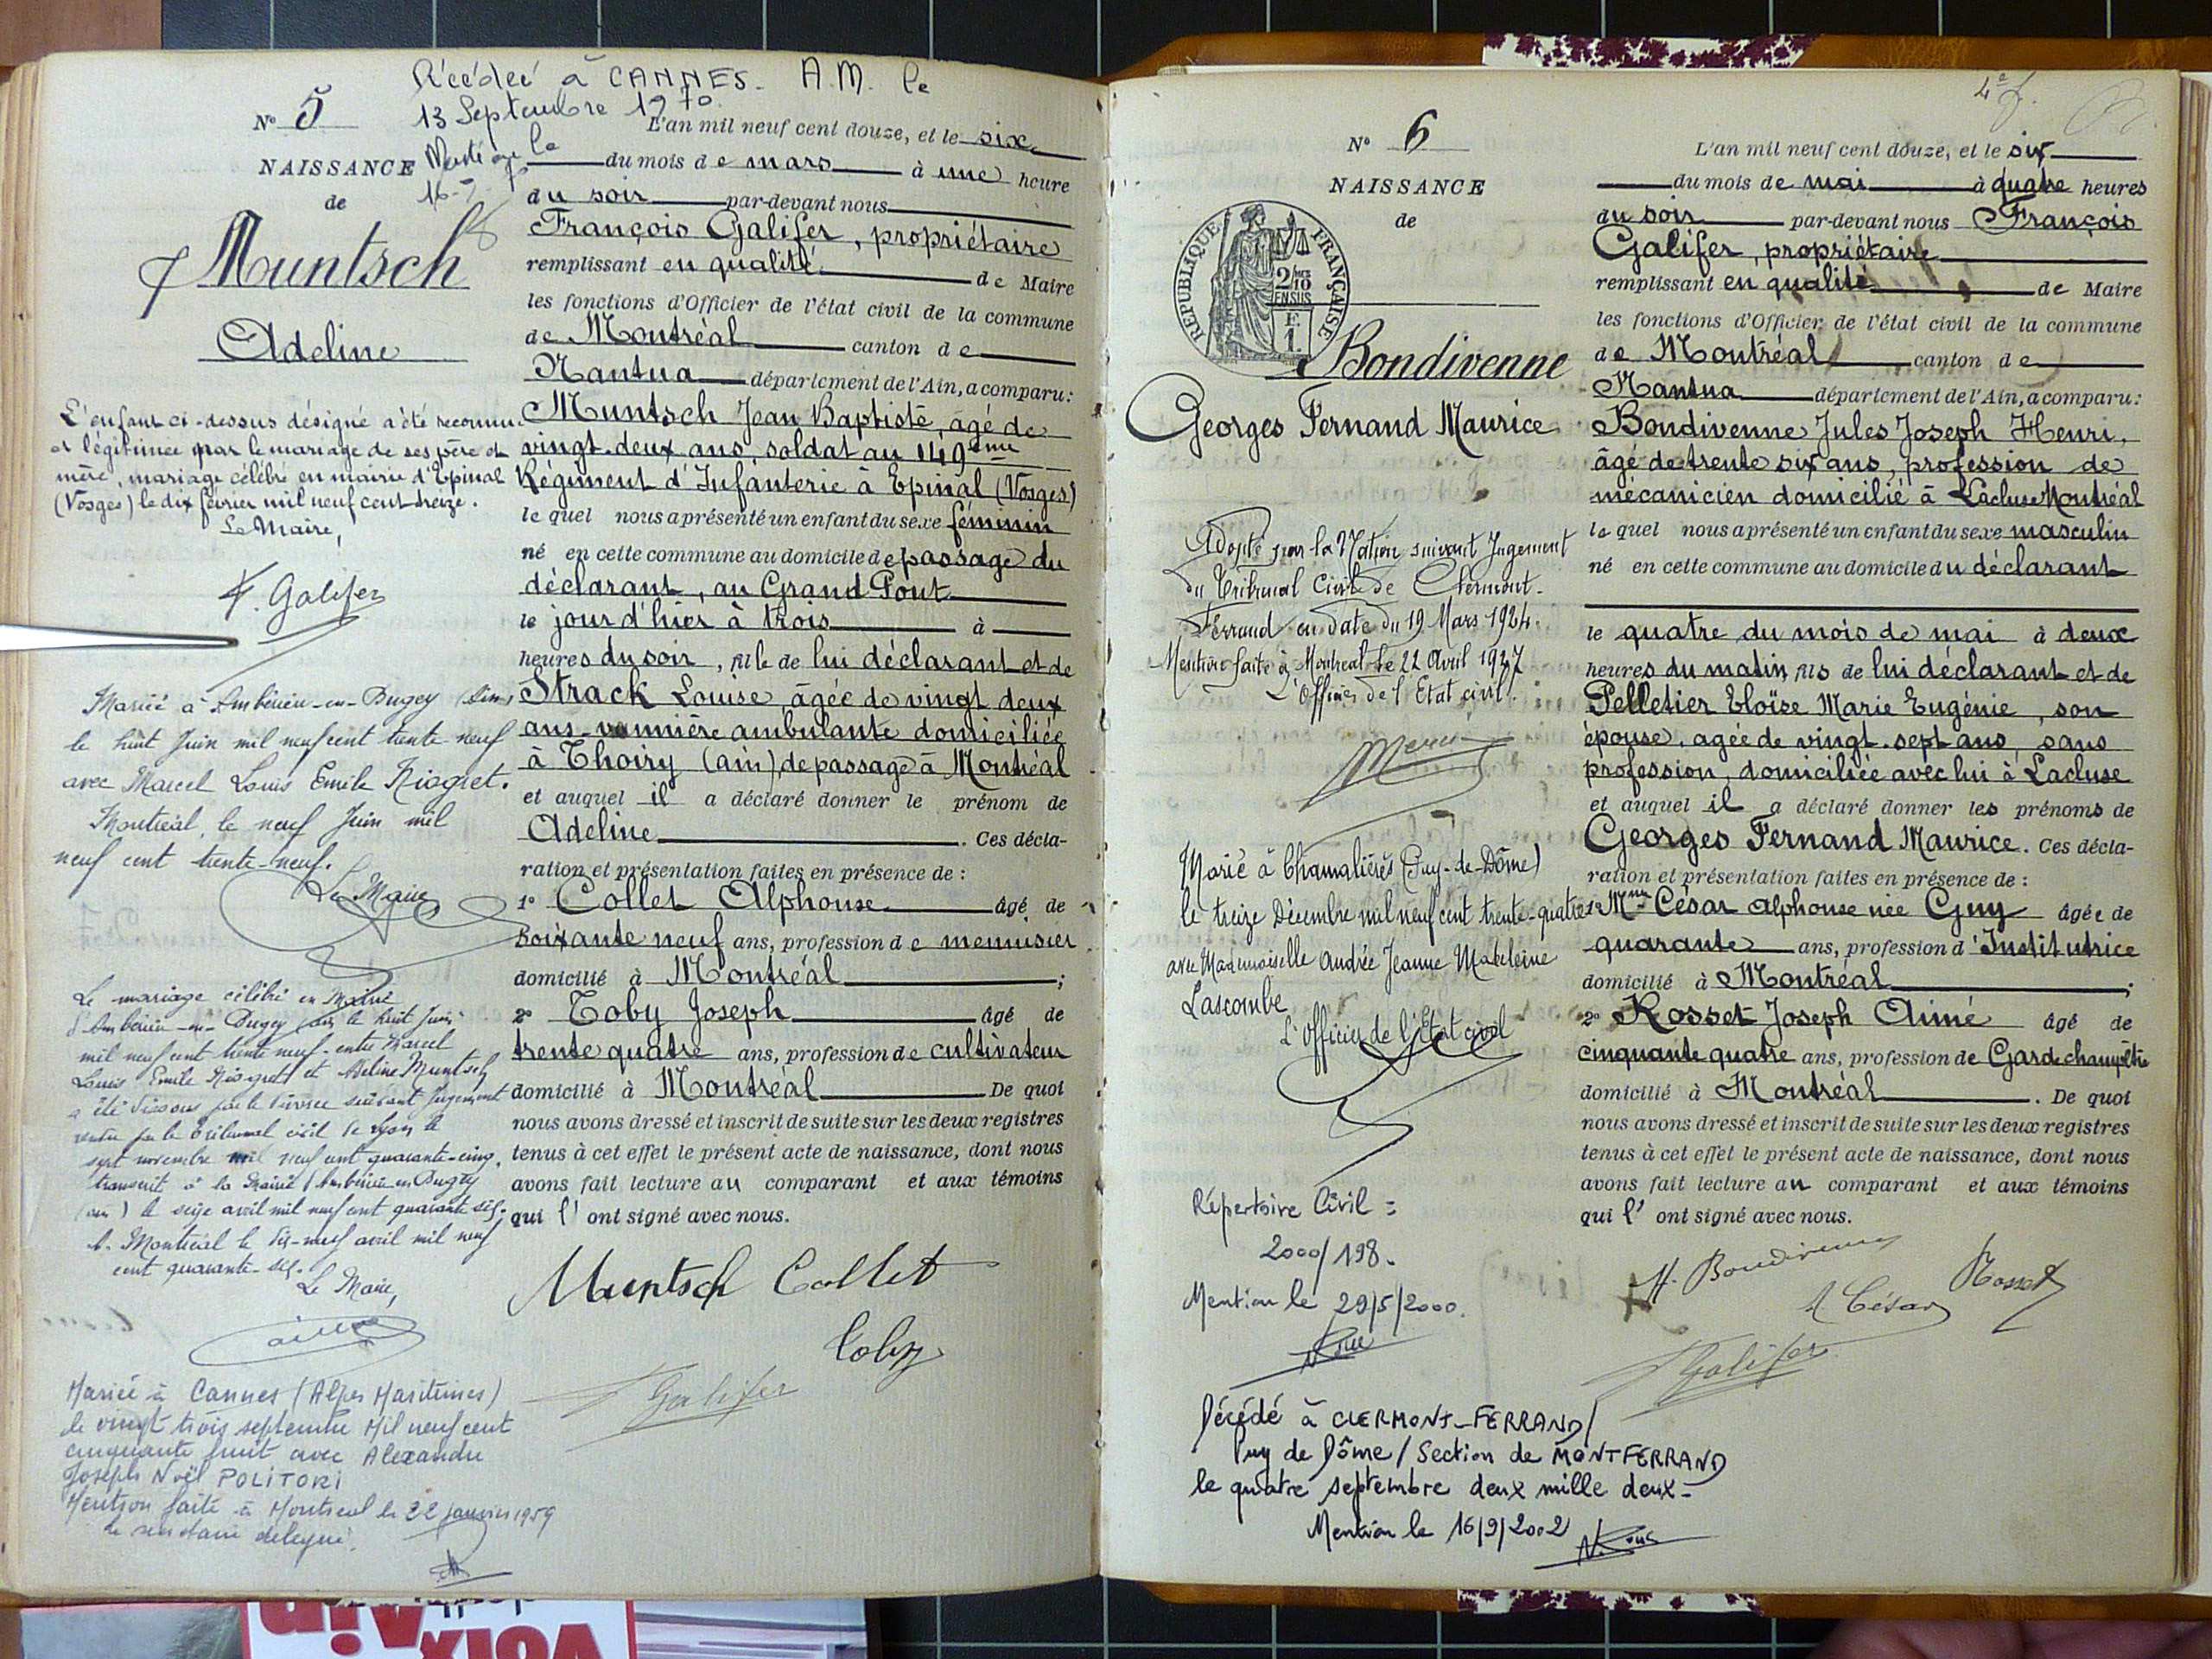 Décédée à CANNES. A.M. le
13 Septembre 1970
N° 5
NAISSANCE
de
Muntsch
Adeline
L'enfant ci-dessus désigné a été reconnu
et légitimée par le mariage de ses père et
mère, mariage célébré en mairie d'Epinal
(Vosges) le dix février mil neuf cent treize.
Le Maire,
F. Galifer
Mariée à Ambérieu-en-Bugey (Ain)
le huit Juin mil neuf cent trente-neuf
avec Marcel Louis Emile
Montréal, le neuf Juin mil
neuf cent trente-neuf.
Le Maire
Le mariage célébré en Mairie
d'Ambérieu-en-Bugey (Ain) le huit Juin
mil neuf cent trente neuf entre Marcel
Louis Emile et Adeline Muntsch
a été dissous par le divorce suivant Jugement
rendu par le Tribunal civil de Lyon le
sept novembre mil neuf cent quarante-cinq,
transcrit à la Mairie d'Ambérieu en Bugey
(Ain) le seize avril mil neuf cent quarante six.
Montréal le dix-neuf avril mil neuf
cent quarante-six.
Le Maire,
Mariée à Cannes (Alpes Maritimes)
le vingt trois septembre Mil neuf cent
cinquante huit avec Alexandre
Joseph Noël POLITORI
Mention faite à Montréal le 22 janvier 1959
L'an mil neuf cent douze, et le six
du mois de mars à une heure
du soir par-devant nous
François Galifer, propriétaire
remplissant en qualité de Maire
les fonctions d'Officier de l'état civil de la commune
de Montréal canton de
Nantua département de l'Ain, a comparu:
Muntsch Jean Baptiste, âgé de
vingt-deux ans, soldat au 149ème
Régiment d'Infanterie à Epinal (Vosges)
le quel nous a présenté un enfant du sexe féminin
né en cette commune au domicile de passage du
déclarant, au Grand Pont
le jour d'hier à trois à
heures du soir, fille de lui déclarant et de
Strack Louise, âgée de vingt deux
ans vannière ambulante domiciliée
à Thoiry (ain) de passage à Montréal
et auquel il a déclaré donner le prénom de
Adeline. Ces décla-
ration et présentation faites en présence de :
1° Collet Alphonse âgé de
soixante neuf ans, profession de menuisier
domicilié à Montréal ;
2° Toby Joseph âgé de
trente quatre ans, profession de cultivateur
domicilié à Montréal De quoi
nous avons dressé et inscrit de suite sur les deux registres
tenus à cet effet le présent acte de naissance, dont nous
avons fait lecture au comparant et aux témoins
qui l' ont signé avec nous.
Muntsch Collet
Toby
F Galifer
N° 6
NAISSANCE
de
RÉPUBLIQUE FRANÇAISE
2/10 EN SUS
E.
1.
Bondivenne
Georges Fernand Maurice
Adopté par la Nation suivant Jugement
du Tribunal Civil de Clermont-
Ferrand en date du 19 Mars 1924.
Mention faite à Montréal le 22 Avril 1927
L'Officier de l'Etat civil.
Marié à Chamalières (Puy-de-Dôme)
le treize Décembre mil neuf cent trente-quatre
avec Mademoiselle Andrée Jeanne Madeleine
Lascombe
L'Officier de l'Etat civil
Répertoire Civil =
2000/198.
Mention le 29/5/2000.
Décédé à CLERMONT-FERRAND/
Puy de Dôme / Section de MONTFERRAND
le quatre septembre deux mille deux-
Mention le 16/9/2002
L'an mil neuf cent douze, et le six
du mois de mai à quatre heures
du soir par-devant nous François
Galifer, propriétaire
remplissant en qualité de Maire
les fonctions d'Officier de l'état civil de la commune
de Montréal canton de
Nantua département de l'Ain, a comparu:
Bondivenne Jules Joseph Henri,
âgé de trente six ans, profession de
mécanicien domicilié à Lacluse Montréal
le quel nous a présenté un enfant du sexe masculin
né en cette commune au domicile du déclarant
le quatre du mois de mai à deux
heures du matin, fils de lui déclarant et de
Pelletier Eloïse Marie Eugénie, son
épouse, agée de vingt-sept ans, sans
profession, domiciliée avec lui à Lacluse
et auquel il a déclaré donner les prénoms de
Georges Fernand Maurice. Ces décla-
ration et présentation faites en présence de :
1° Mme César Alphonse née Guy âgée de
quarante ans, profession d'Institutrice
domicilié à Montréal ;
2° Rosset Joseph Aimé âgé de
cinquante quatre ans, profession de Garde champêtre
domicilié à Montréal. De quoi
nous avons dressé et inscrit de suite sur les deux registres
tenus à cet effet le présent acte de naissance, dont nous
avons fait lecture au comparant et aux témoins
qui l' ont signé avec nous.
H. Bondivenne
A César
Rosset
F Galifer